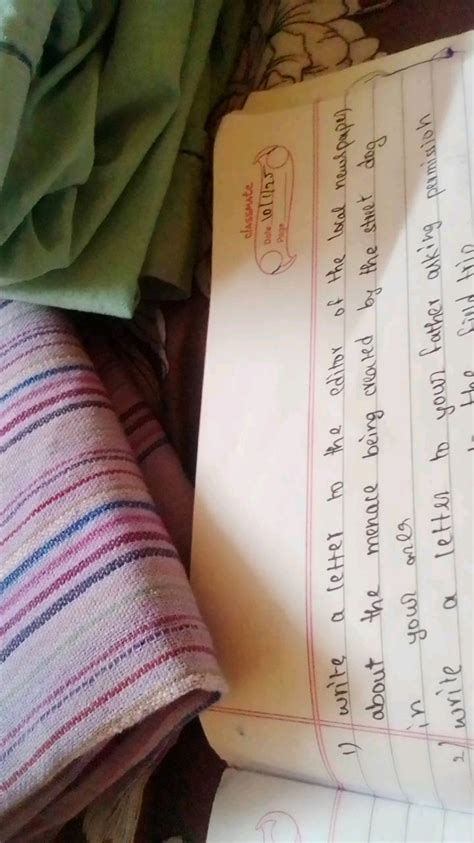 classmate
Date 10/1/25
Page
1) write a letter to the editor of the local newspaper,
about the menace being created by the street dog
in your area
2) write a letter to your father asking permission
the first trip